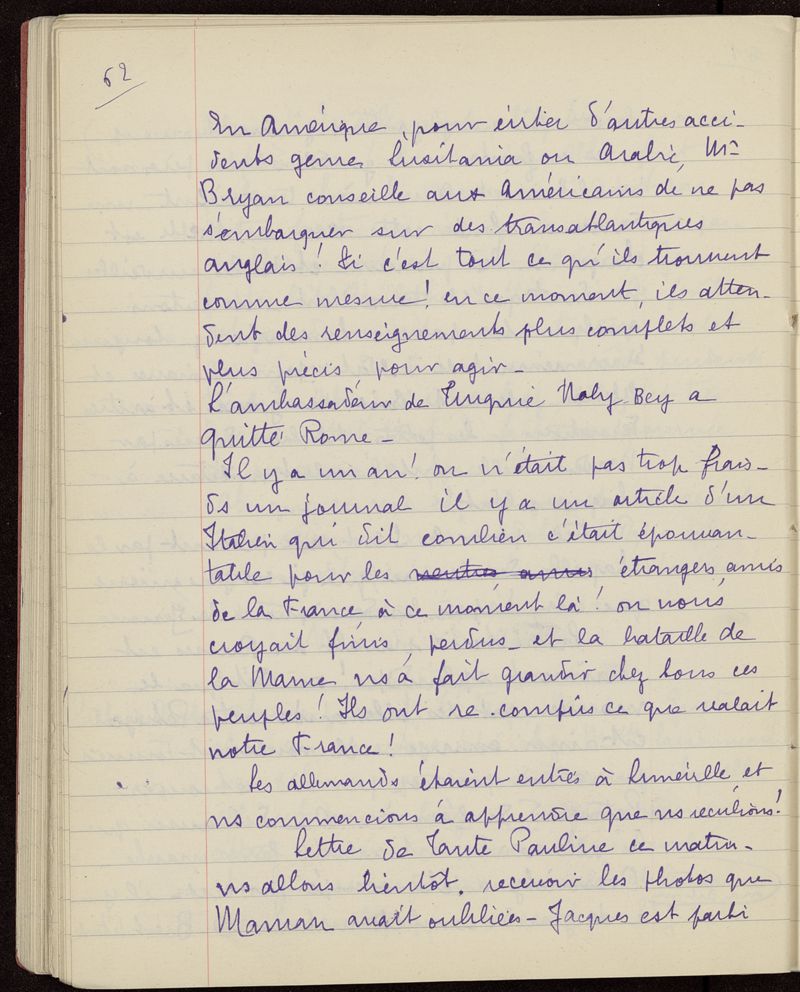 62
En Amérique, pour éviter d'autres acci-
dents genre Lusitania ou Arabic, Mr
Bryan conseille aux Américains de ne pas
s'embarquer sur des transatlantiques
anglais ! Si c'est tout ce qu'ils trouvent
comme mesure ! en ce moment, ils atten-
dent des renseignements plus complets et
plus précis pour agir -
L'ambassadeur de Turquie Naby Bey a
quitté Rome -
Il y a un an ! on n'était pas trop frais -
ds un journal il y a un article d'un
Italien qui dit combien c'était épouvan-
table pour les étrangers, amis
de la France à ce moment là ! on nous
croyait finis, perdus - et la bataille de
la Marne ns a fait grandir chez tous ces
peuples ! Ils ont re-compris ce que valait
notre France !
Les allemands étaient entrés à Lunéville, et
ns commencions à apprendre que ns reculions !
Lettre de Tante Pauline ce matin -
ns allons bientôt recevoir les photos que
Maman avait oubliées - Jacques est parti